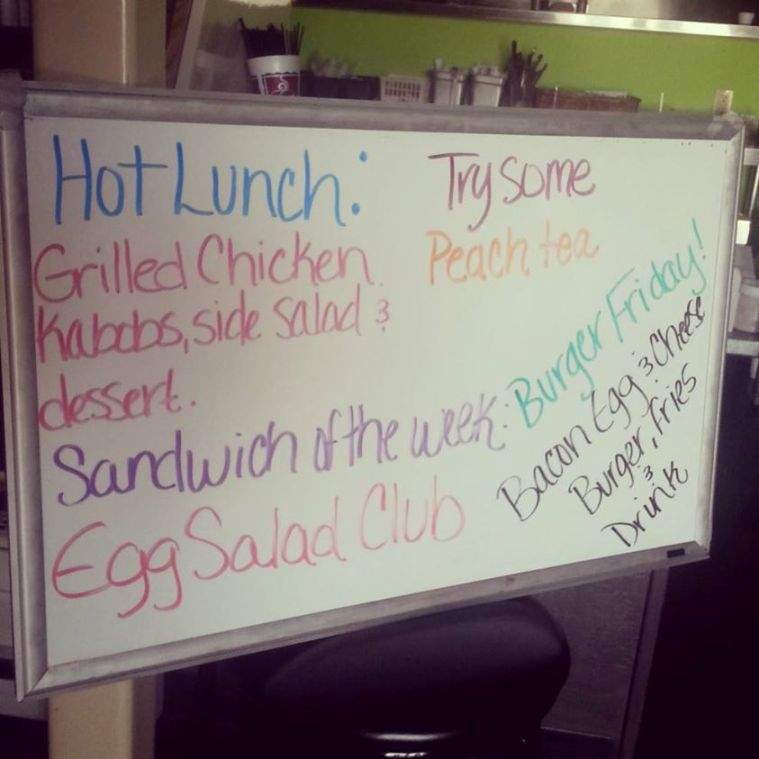 Hot Lunch:
Grilled Chicken
Kabobs, side salad &
dessert.
Try some
Peach tea
Sandwich of the week:
Egg Salad Club
Burger Friday!
Bacon Egg & Cheese
Burger, fries
&
Drink